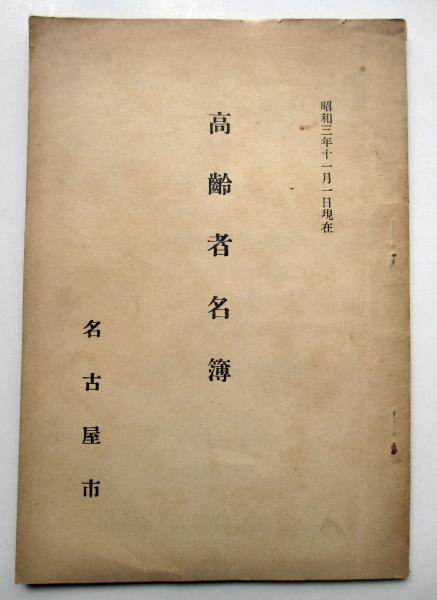 昭和三年十一月一日現在
高齡者名簿
名古屋市